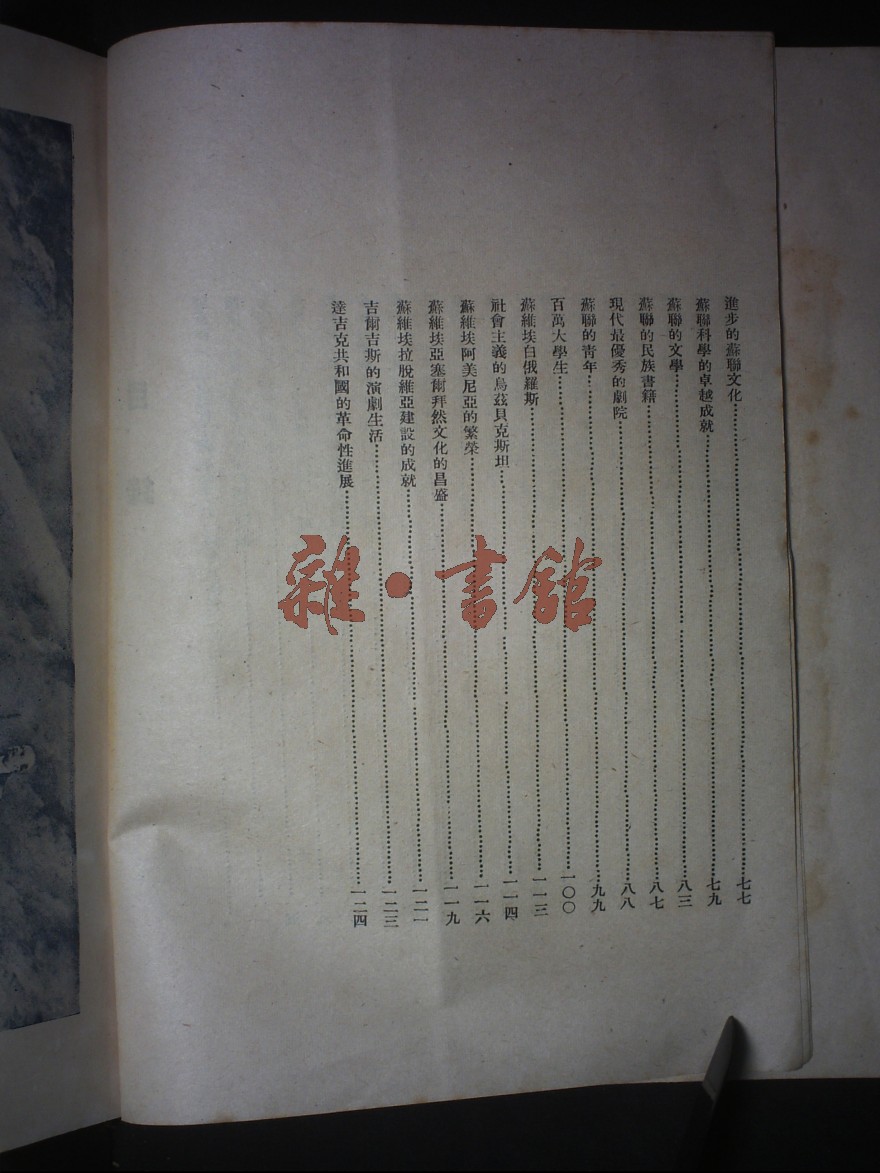 進步的蘇聯文化……七七
蘇聯科學的卓越成就……七九
蘇聯的文學……八三
蘇聯的民族書籍……八七
現代最優秀的劇院……八八
蘇聯的青年……九九
百萬大學生……一〇〇
蘇維埃白俄羅斯……一一三
社會主義的烏茲貝克斯坦……一一四
蘇維埃阿美尼亞的繁榮……一一六
蘇維埃亞塞爾拜然文化的昌盛……一一九
蘇維埃拉脫維亞建設的成就……一二一
吉爾吉斯的演劇生活……一二三
達吉克共和國的革命性進展……一二四
雜·書館